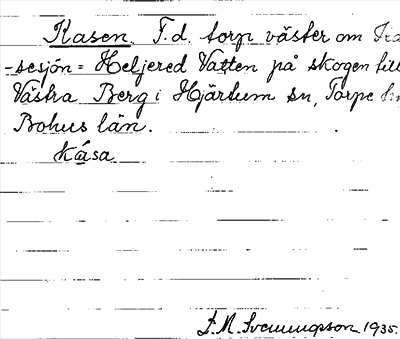 Kasen. F.d. torp väster om Ka
-sesjön = Heljered Vatten på skogen till
Västra Berg i Hjärtum sn, Torpe h
Bohus län.
kása
F. M. Svenungsson 1935.